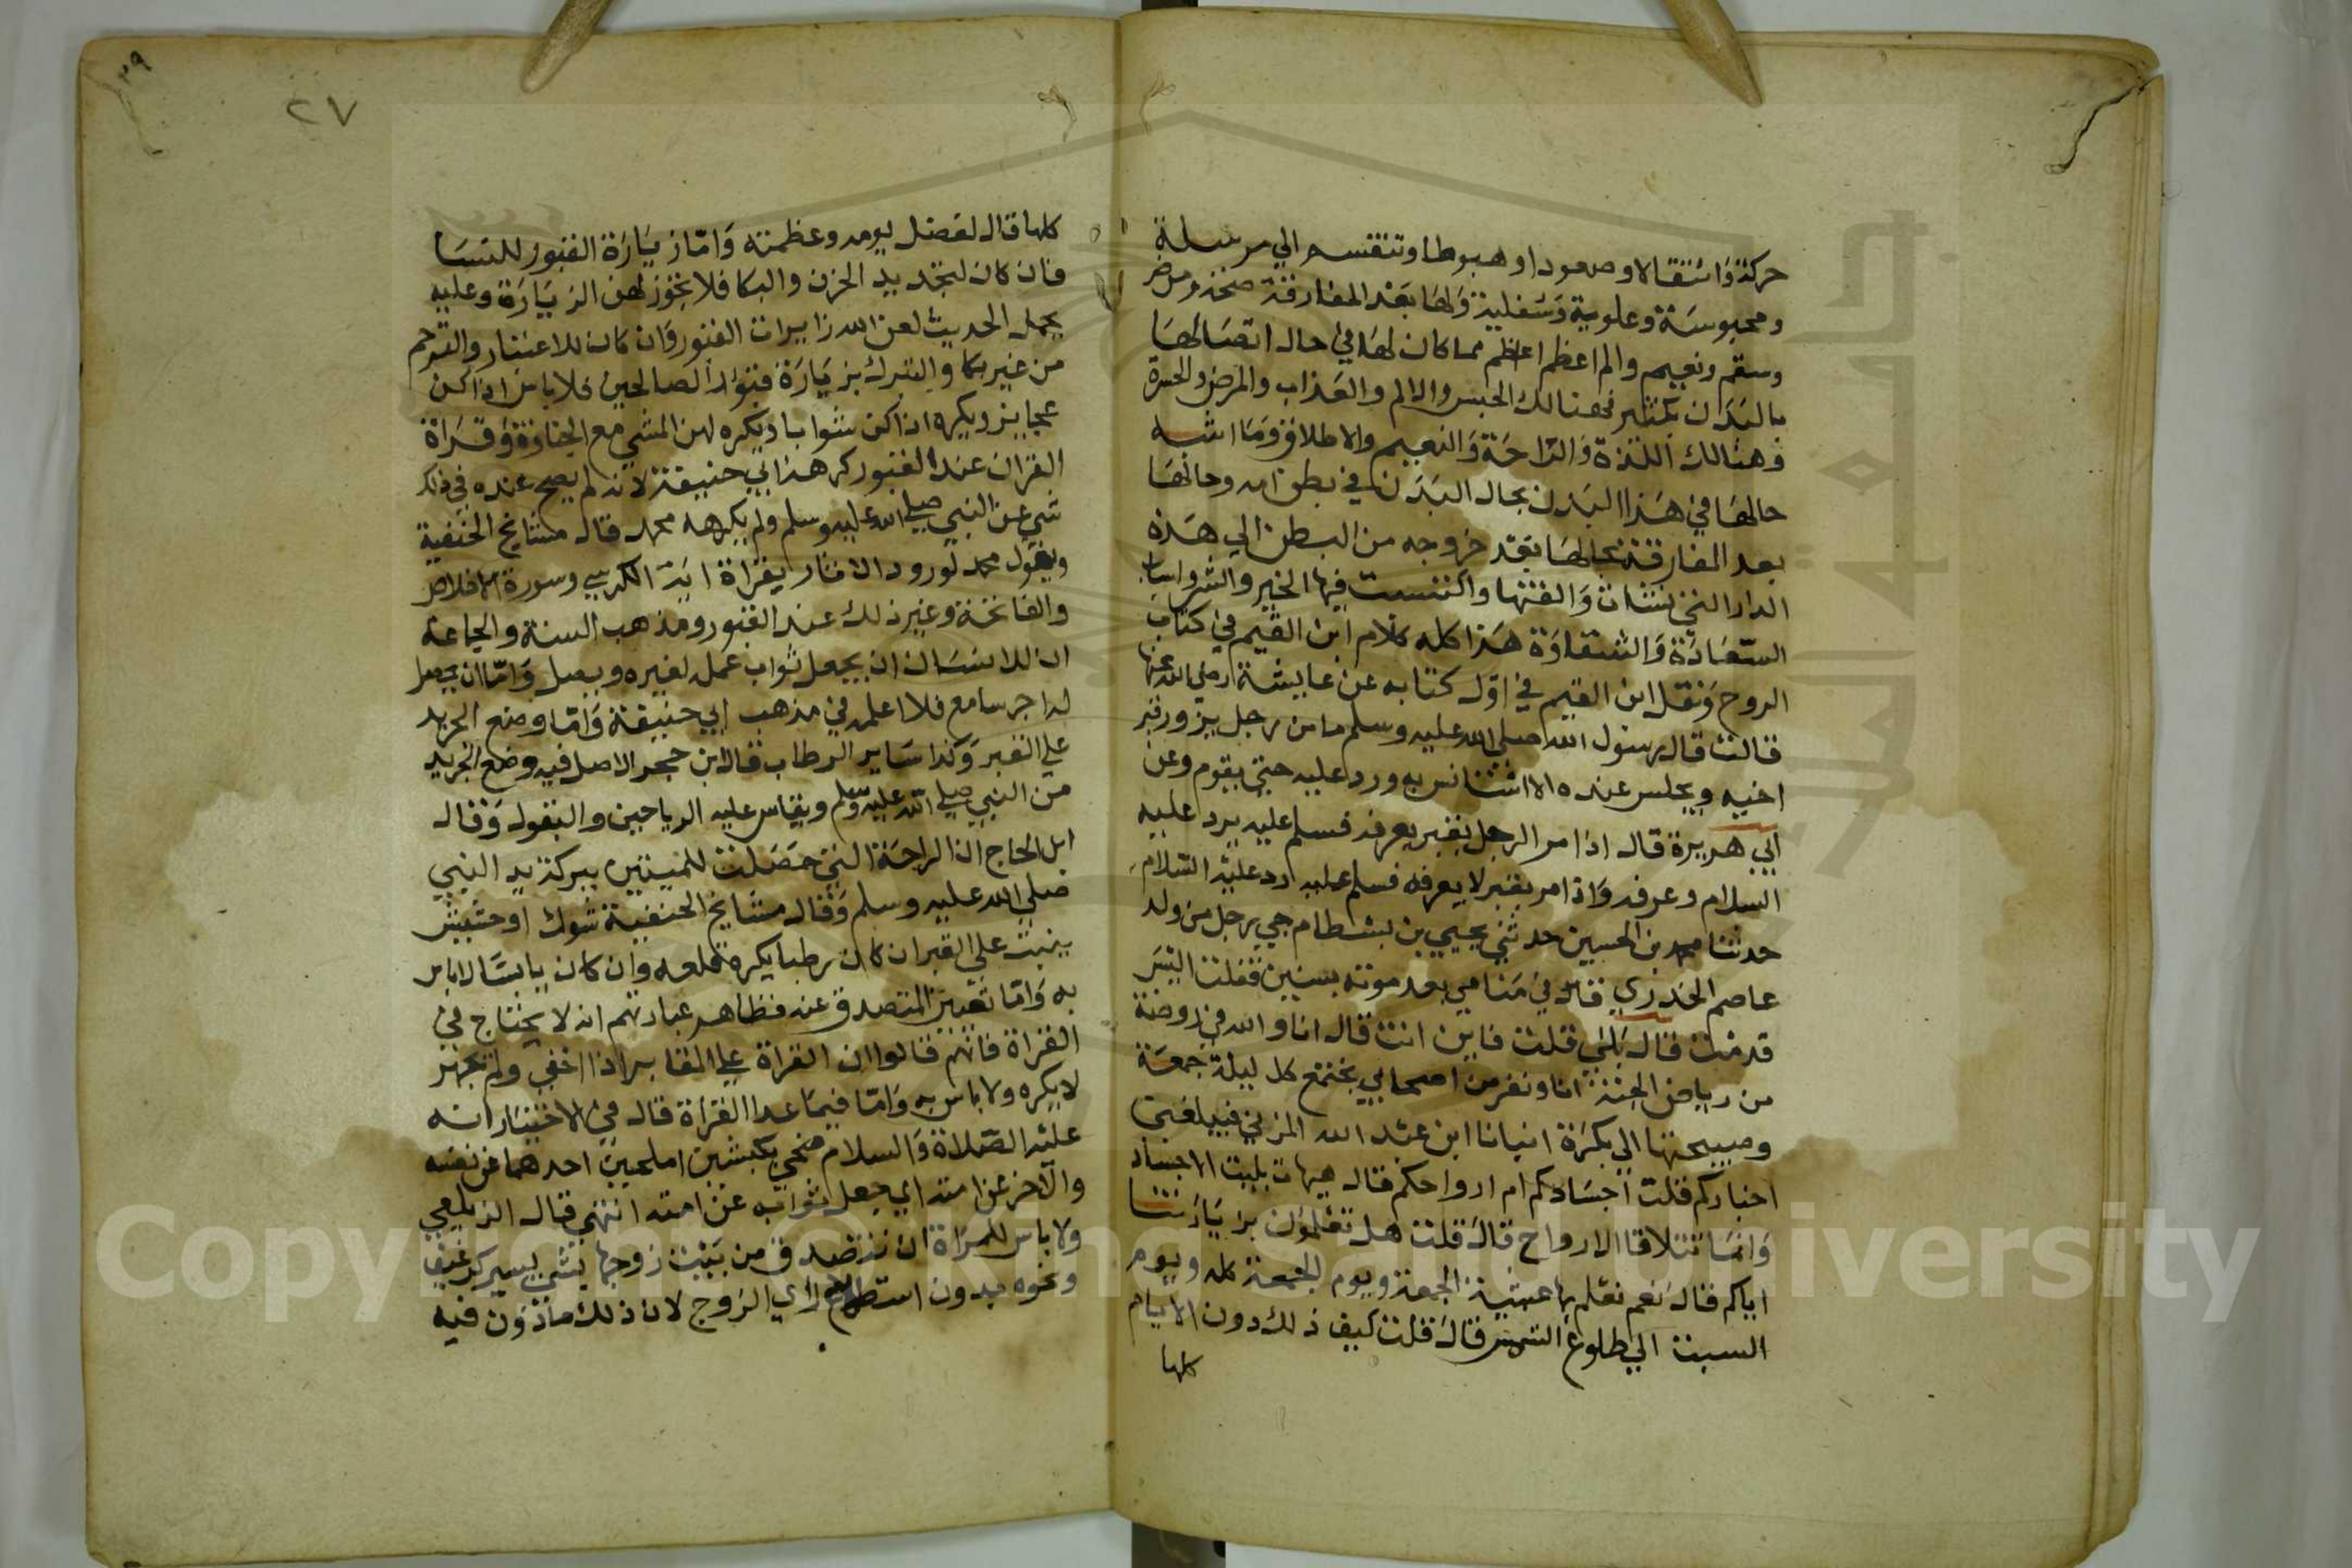 حركة وانتقالا وصعودا وهبوطا وتنقسم الي مرسلة
ومحبوسة وعلوية وسفلية ولها بعد المفارقة صحة ومرض
وسقم ونعيم والم اعظم اعظم مما كان لها في حال اتصالها
بالبدن بكثير فهنالك الحبس والالم والعذاب والمرض والحسرة
وهنالك اللذة والراحة والنعيم والاطلاق وما اشبه
حالها في هذا البدن بحال البدن في بطن امه وحالها
بعد المفارقة بحالها بعد خروجه من البطن الي هذه
الدار التي نشات والفتها واكتسبت فيها الخير والشر واسباب
السعادة والشقاوة هذا كله كلام ابن القيم في كتاب
الروح ونقل ابن القيم في اول كتابه عن عايشة رضي الله عنها
قالت قال رسول الله صلي الله عليه وسلم ما من رجل يزور قبر
اخيه ويجلس عنده الا استانس به ورد عليه حتي يقوم وعن
ابي هريرة قال اذا مر الرجل بقبر يعرفه فسلم عليه يرد عليه
السلام وعرفه واذا مر بقبر لا يعرفه فسلم عليه رد عليه السلام
حدثنا محمد بن الحسين حدثني يحيي بن بسطام حي رجل من ولد
عاصم الحدري قال في منامي بعد موته بسنين فقلت اليس
قد مت قال بلي قلت فاين انت قال انا والله في روضة
من رياض الجنة انا ونفر من اصحابي نجتمع كل ليلة جمعة
وصبيحتها الي بكرة ابن عبد الله المزني فيبلغنا
اخباركم قلت اجسادكم ام ارواحكم قال هيهات بليت الاجساد
وانما تتلاقا الارواح قال قلت هل تعلمون بزيارتنا
اياكم قال نعم نعلم بها عشية الجمعة ويوم الجمعة كله ويوم
السبت الي طلوع الشمس قال قلت كيف ذلك دون الايام
كلها
٣٩
٢٧
كلها قال لفضل يومه وعظمته واما زيارة القبور للنسا
فان كان لتجديد الحزن والبكا فلا تجوز لهن الزيارة وعليه
يحمل الحديث لعن الله زايرات القبور وان كان للاعتبار والترحم
من غير بكا والتبرك بزيارة قبور الصالحين فلا باس اذا كن
عجايز ويكره اذا كن شوابا ويكره لهن المشي مع الجنازة وقراة
القران عند القبور كرهها ابي حنيفة لانه لم يصح عنده في ذلك
شي عن النبي صلي الله عليه وسلم ولم يكرهه محمد قال مشايخ الحنفية
وبقول محمد لورود الاثار يقراة اية الكرسي وسورة الاخلاص
والفاتحة وغير ذلك عند القبور ومذهب السنة والجماعة
ان للانسان ان يجعل ثواب عمله لغيره ويصل واما ان يجعل
له اجر سامع فلا اعلمه في مذهب ابي حنيفة واما وضع الجريد
علي القبر وكذا ساير الرطاب قال ابن حجر الاصل فيه وضع الجريد
من النبي صلي الله عليه وسلم ويقاس عليه الرياحين والبقول وقال
ابن الحاج ان الراحة التي حصلت للميتين ببركة يد النبي
صلي الله عليه وسلم وقال مشايخ الحنفية شوك او حشيش
ينبت علي القبر ان كان رطبا يكره قلعه وان كان يابسا لا باس
به واما تعيين المتصدق عنه فظاهر عبارتهم انه لا يحتاج في
القراة فانهم قالوا ان القراة علي المقابر اذا اخفي ولم يجهر
لا يكره ولا باس به واما فيما عدا القراة قال في الاختيار انه
عليه الصلاة والسلام ضحي بكبشين املحين احدهما عن نفسه
والآخر عن امته اي جعل ثوابه عن امته انتهي قال الزيلعي
ولا باس للمراة ان تتصدق من بيت زوجها بشي يسير كرغيف
ونحوه بدون استطلاع راي الزوج لان ذلك ماذون فيه
Copyright © King Saud University